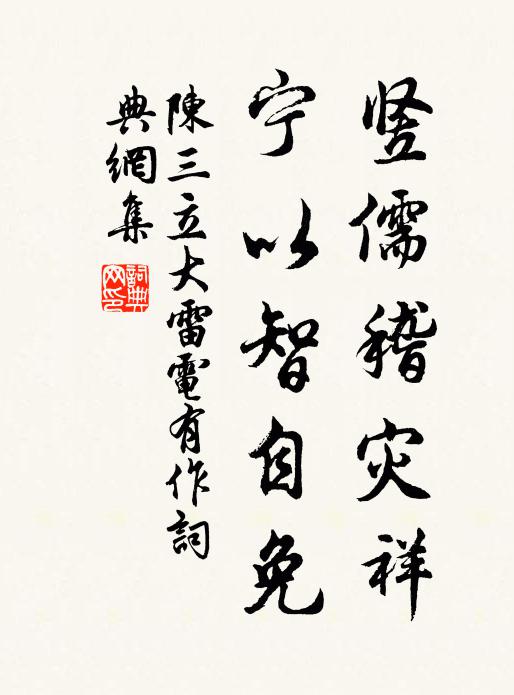 竖儒稽灾祥
宁以智自免
陳三立大雷電有作詞
典網集
詞典
网印